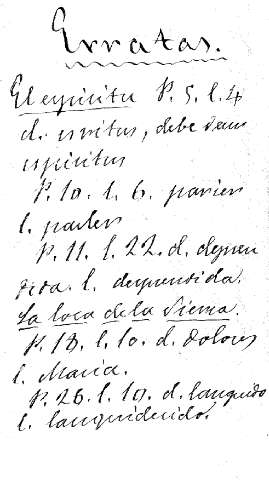 Erratas.
El espiritu P. 5. l. 4
d. uritus, debe decir
espiritus
P. 10. l. 6. parien
l. parten
P. 11. l. 22. d. depren
dida. l. desprendida.
La loca de la Sierra.
P. 13. l. 10. d. Dolores
l. María.
P. 26. l. 10. d. languido
l. languidecido.